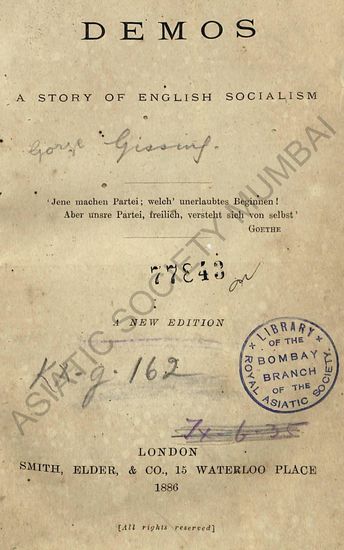 DEMOS
A STORY OF ENGLISH SOCIALISM
George Gissing.
'Jene machen Partei; welch' unerlaubtes Beginnen!
Aber unsre Partei, freilich, versteht sich von selbst'
GOETHE
77843
A NEW EDITION
LIBRARY
OF THE
BOMBAY
BRANCH
OF THE
ROYAL ASIATIC SOCIETY.
g. 162
LONDON
SMITH, ELDER, & CO., 15 WATERLOO PLACE
1886
[All rights reserved]
ASIATIC SOCIETY MUMBAI